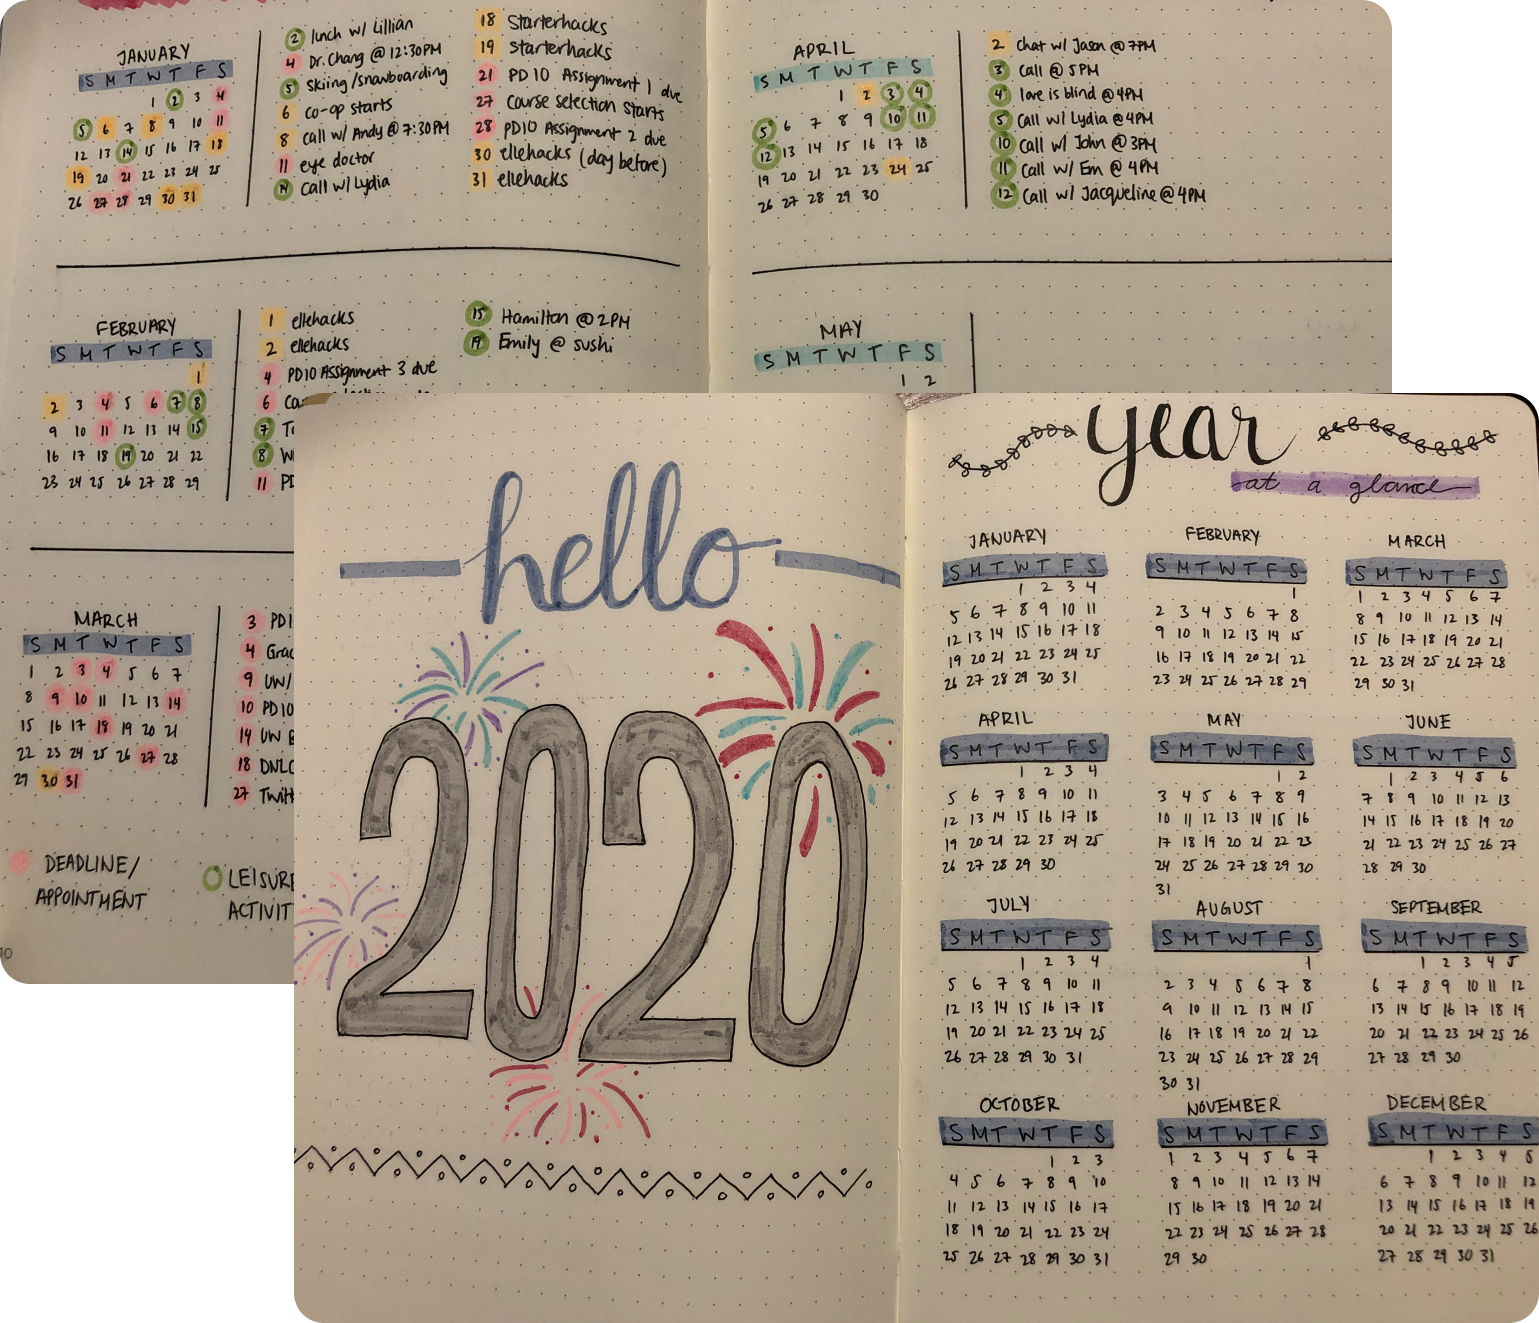 JANUARY
S M T W T F S
1 2 3 4
5 6 7 8 9 10 11
12 13 14 15 16 17 18
19 20 21 22 23 24 25
26 27 28 29 30 31
2 lunch w/ Lillian
4 Dr. Chang @ 12:30PM
5 skiing/snowboarding
6 co-op starts
8 call w/ Andy @ 7:30PM
11 eye doctor
14 call w/ Lydia
18 Starterhacks
19 starterhacks
21 PD10 Assignment 1 due
27 course selection starts
28 PD10 Assignment 2 due
30 ellehacks (day before)
31 ellehacks
FEBRUARY
S M T W T F S
1
2 3 4 5 6 7 8
9 10 11 12 13 14 15
16 17 18 19 20 21 22
23 24 25 26 27 28 29
1 ellehacks
2 ellehacks
4 PD10 Assignment 3 due
6
7
8
11
15 Hamilton @ 2PM
19 Emily @ sushi
MARCH
S M T W T F S
1 2 3 4 5 6 7
8 9 10 11 12 13 14
15 16 17 18 19 20 21
22 23 24 25 26 27 28
29 30 31
3
4
9
10 PD10
14
18
27
DEADLINE/
APPOINTMENT
LEISURE
ACTIVIT
10
APRIL
S M T W T F S
1 2 3 4
5 6 7 8 9 10 11
12 13 14 15 16 17 18
19 20 21 22 23 24 25
26 27 28 29 30
2 chat w/ Jason @ 7PM
3 call @ 5PM
4 love is blind @ 4PM
5 call w/ Lydia @ 4PM
10 call w/ John @ 3PM
11 call w/ Em @ 4PM
12 call w/ Jacqueline @ 4PM
MAY
S M T W T F S
1 2
hello
2020
year
at a glance
JANUARY
S M T W T F S
1 2 3 4
5 6 7 8 9 10 11
12 13 14 15 16 17 18
19 20 21 22 23 24 25
26 27 28 29 30 31
FEBRUARY
S M T W T F S
1
2 3 4 5 6 7 8
9 10 11 12 13 14 15
16 17 18 19 20 21 22
23 24 25 26 27 28 29
MARCH
S M T W T F S
1 2 3 4 5 6 7
8 9 10 11 12 13 14
15 16 17 18 19 20 21
22 23 24 25 26 27 28
29 30 31
APRIL
S M T W T F S
1 2 3 4
5 6 7 8 9 10 11
12 13 14 15 16 17 18
19 20 21 22 23 24 25
26 27 28 29 30
MAY
S M T W T F S
1 2
3 4 5 6 7 8 9
10 11 12 13 14 15 16
17 18 19 20 21 22 23
24 25 26 27 28 29 30
31
JUNE
S M T W T F S
1 2 3 4 5 6
7 8 9 10 11 12 13
14 15 16 17 18 19 20
21 22 23 24 25 26 27
28 29 30
JULY
S M T W T F S
1 2 3 4
5 6 7 8 9 10 11
12 13 14 15 16 17 18
19 20 21 22 23 24 25
26 27 28 29 30 31
AUGUST
S M T W T F S
1
2 3 4 5 6 7 8
9 10 11 12 13 14 15
16 17 18 19 20 21 22
23 24 25 26 27 28 29
30 31
SEPTEMBER
S M T W T F S
1 2 3 4 5
6 7 8 9 10 11 12
13 14 15 16 17 18 19
20 21 22 23 24 25 26
27 28 29 30
OCTOBER
S M T W T F S
1 2 3
4 5 6 7 8 9 10
11 12 13 14 15 16 17
18 19 20 21 22 23 24
25 26 27 28 29 30 31
NOVEMBER
S M T W T F S
1 2 3 4 5 6 7
8 9 10 11 12 13 14
15 16 17 18 19 20 21
22 23 24 25 26 27 28
29 30
DECEMBER
S M T W T F S
1 2 3 4 5
6 7 8 9 10 11 12
13 14 15 16 17 18 19
20 21 22 23 24 25 26
27 28 29 30 31